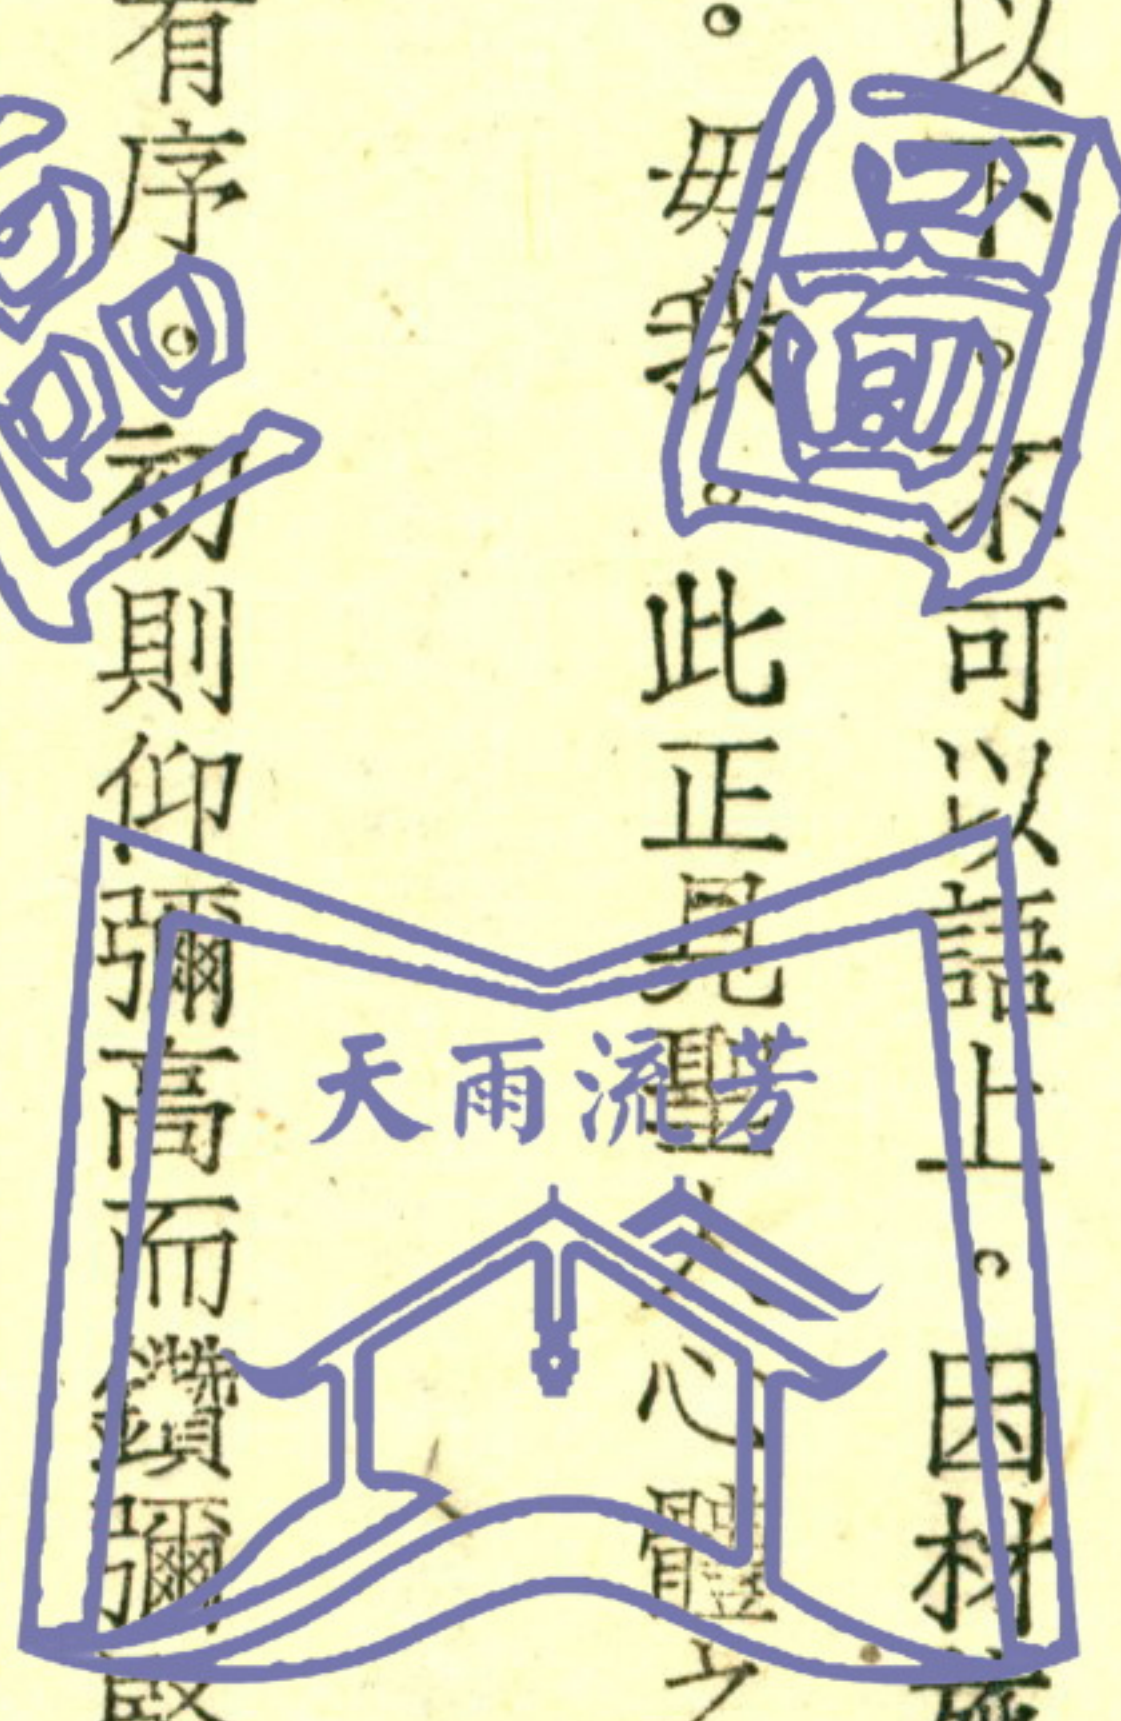 以下。不可以語上。因材施
。毋我。此正見聖人心體之
有序。初則仰彌高而鑽彌堅
圖
區
天雨流芳